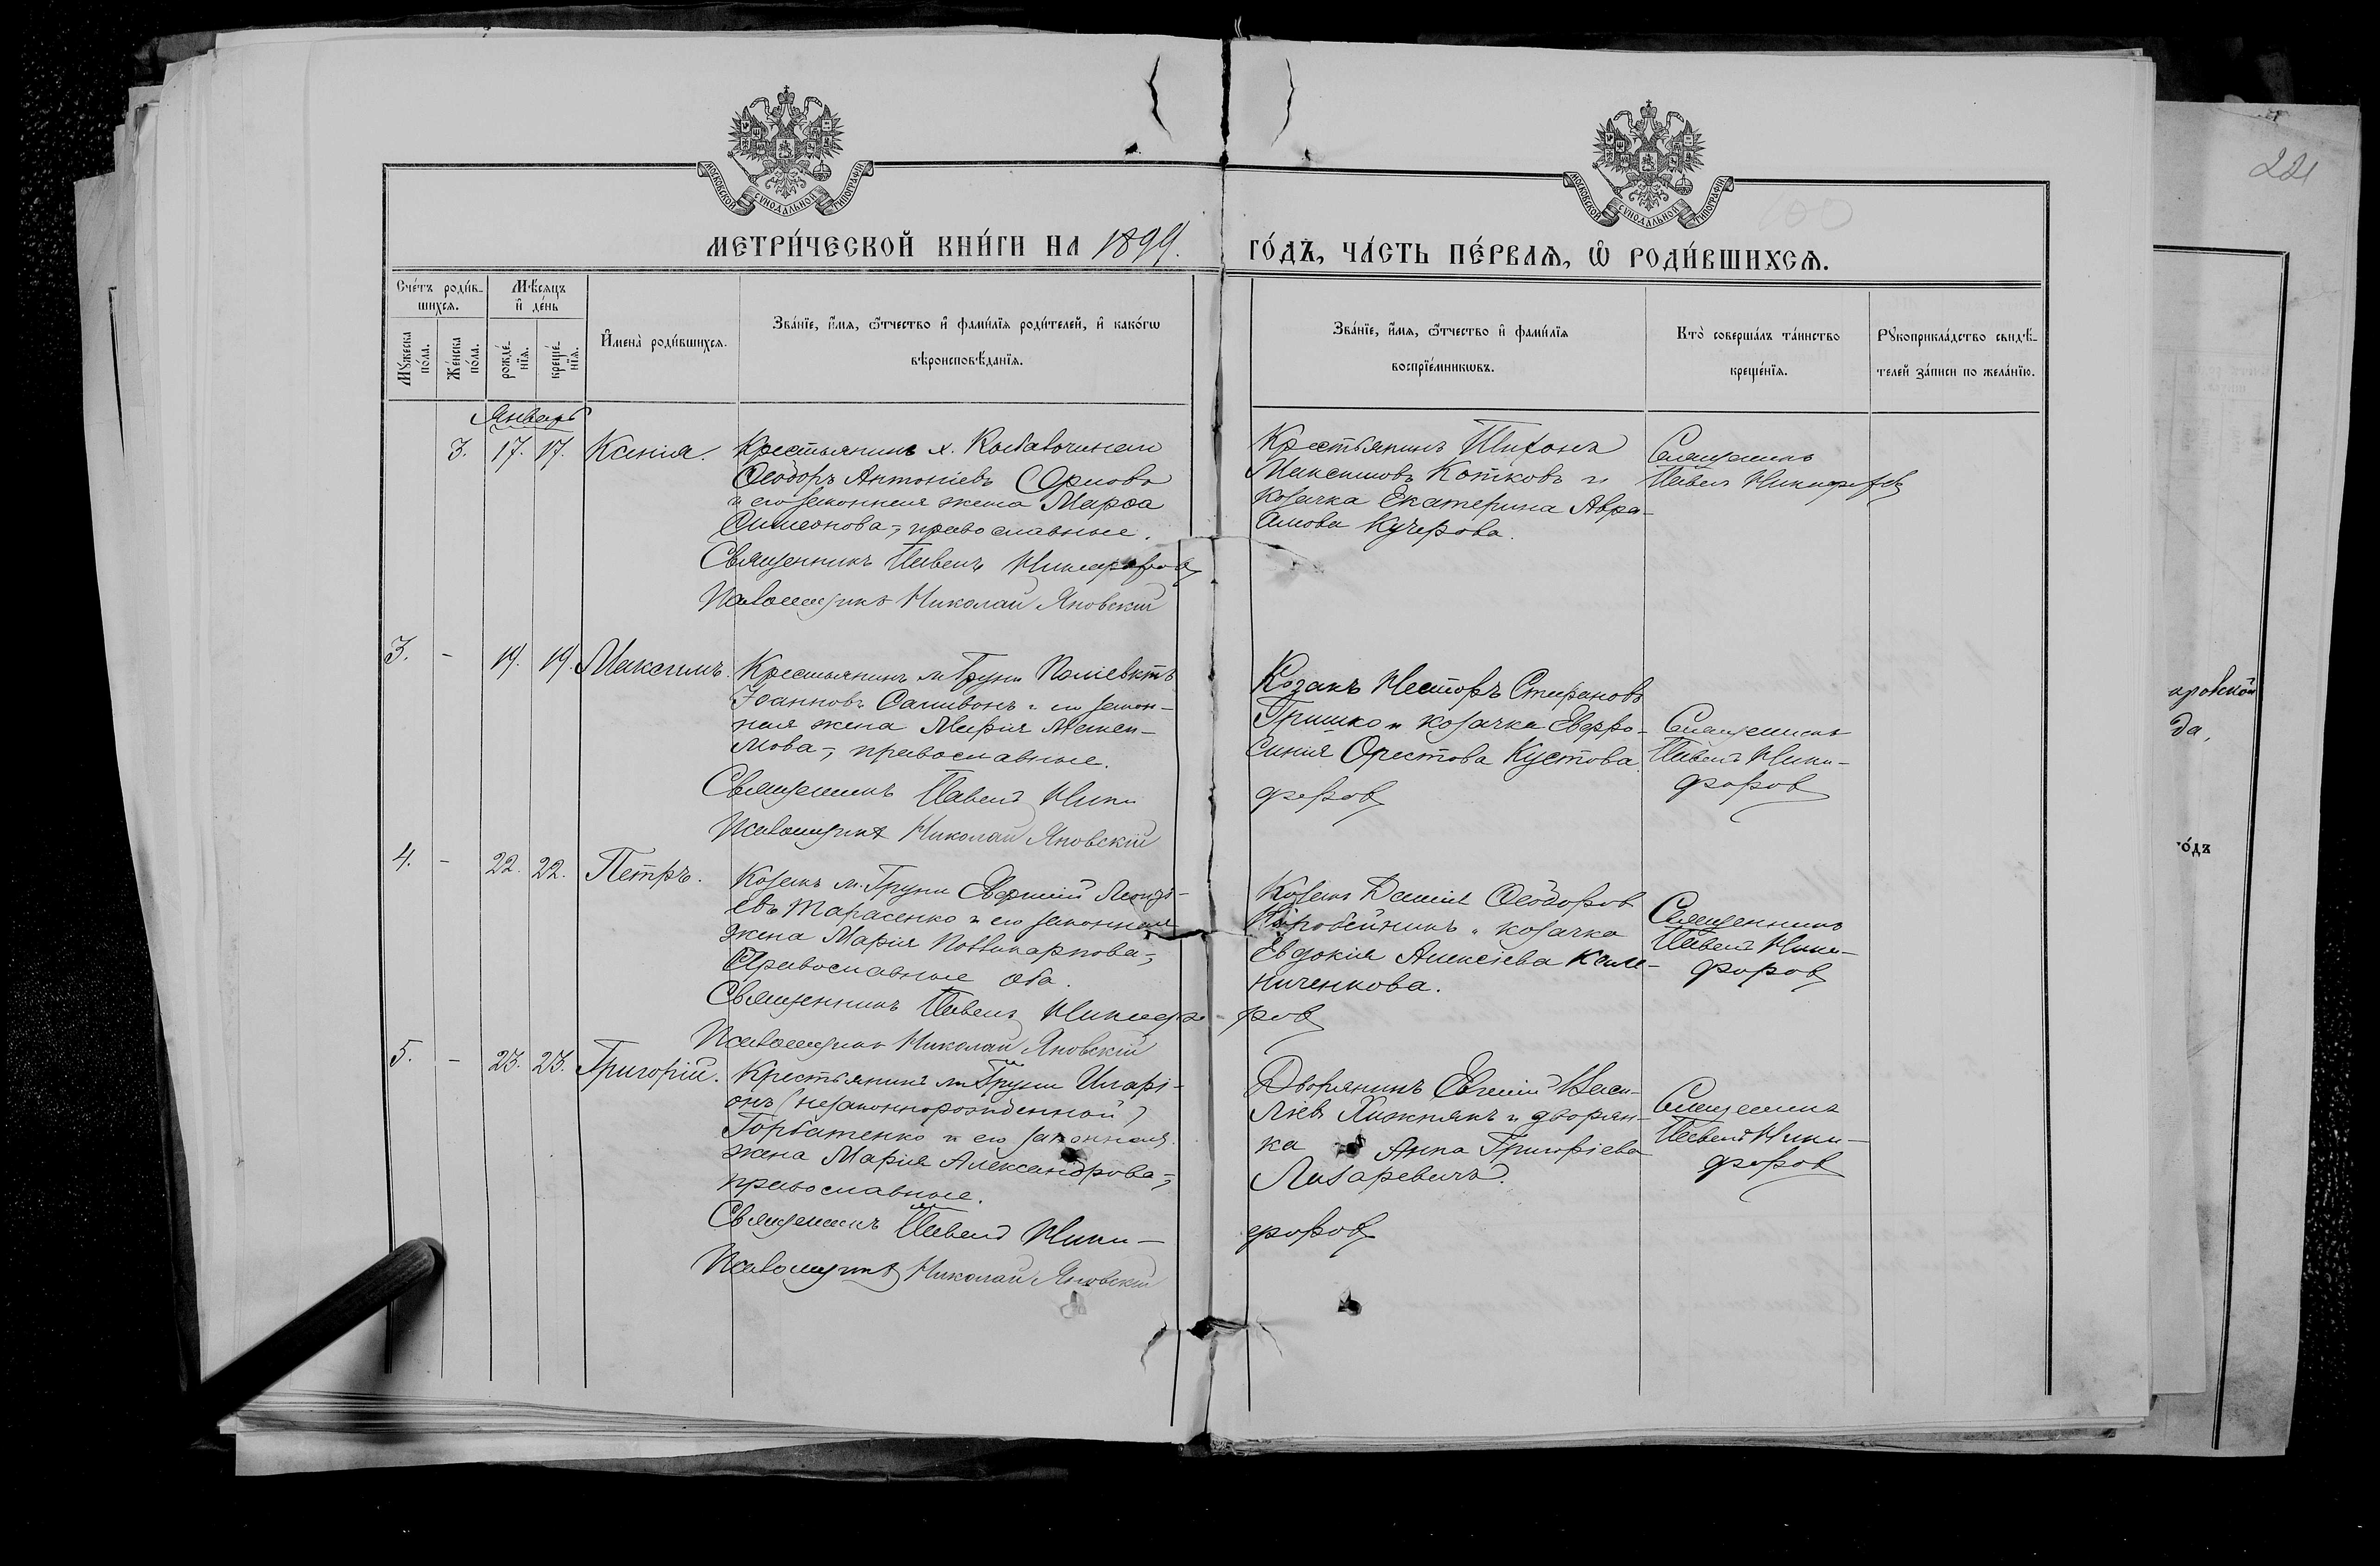 МОСКОВСКОЙ СѴНОДАЛЬНОЙ ТИПОГРАФІИ
МОСКОВСКОЙ СѴНОДАЛЬНОЙ ТИПОГРАФІИ
221
МЕТРИ́ЧЕСКОЙ КНИ́ГИ НА 1899.
ГО́ДЪ, ЧА́СТЬ ПЕ́РВАѦ, Ѡ҆ РОДИ́ВШИХСѦ.
Сче́тъ роди́в-
шихсѧ.
Мѣ́сѧцъ
и҆ де́нь
Мꙋ́жеска
по́ла.
Же́нска
по́ла.
рожде́-
нїѧ.
креще́-
нїѧ.
И҆мена̀ роди́вшихсѧ.
Зва́нїе, и҆́мѧ, ѻ҆́тчество и҆ фами́лїѧ роди́телей, и҆ како́гѡ
вѣроисповѣ́данїѧ.
Зва́нїе, и҆́мѧ, ѻ҆́тчество и҆ фами́лїѧ
воспрїе́мникѡвъ.
Кто̀ соверша́лъ та́инство
креще́нїѧ.
Рꙋкоприкла́дство свидѣ́-
телей за́писи по жела́нїю.
Январь
3. 17. 17. Ксенія.
Крестьянинъ х.
Ѳеодоръ Антоніевъ
и его законная жена Марѳа
Симеонова, православные.
Священникъ Павелъ Никифоровъ
Псаломщикъ Николай Яновскій
Крестьянинъ Тихонъ
Максимовъ Котковъ и
козачка Екатерина Авра-
амова Кучерова.
Священникъ
Павелъ Никифоровъ
3. - 19. 19. Максимъ.
Крестьянинъ м. Груни Поліевктъ
Іоанновъ Саливонъ и его закон-
ная жена Марія
мова, православные.
Священникъ Павелъ Ники
Псаломщикъ Николай Яновскій
Козакъ Несторъ Стефановъ
Гришко и козачка Евфро-
синія Орестова Кустова.
форовъ
Священникъ
Павелъ Ники-
форовъ
4. - 22. 22. Петръ.
Козакъ м. Груни Евфимій
евъ Тарасенко и его законная
жена Марія Поликарпова,
Православные оба.
Священникъ Павелъ Никифо-
Псаломщикъ Николай Яновскій
Козакъ Даніилъ Ѳеодоровъ
Коробейникъ и козачка
Евдокія Алексіева Кали-
ниченкова.
ровъ
Священникъ
Павелъ Ники-
форовъ
5. - 23. 23. Григорій.
Крестьянинъ м. Груни Иларі-
онъ (незаконнорожденной)
Горбатенко и его законная
жена Марія Александрова,
православные.
Священникъ Павелъ Ники-
Псаломщикъ Николай Яновскій
Дворянинъ Евгеній Васи-
ліевъ Хижнякъ и дворян-
ка Анна Григоріева
Лазаревичъ.
форовъ
Священникъ
Павелъ Ники-
форовъ
да,
го́дъ